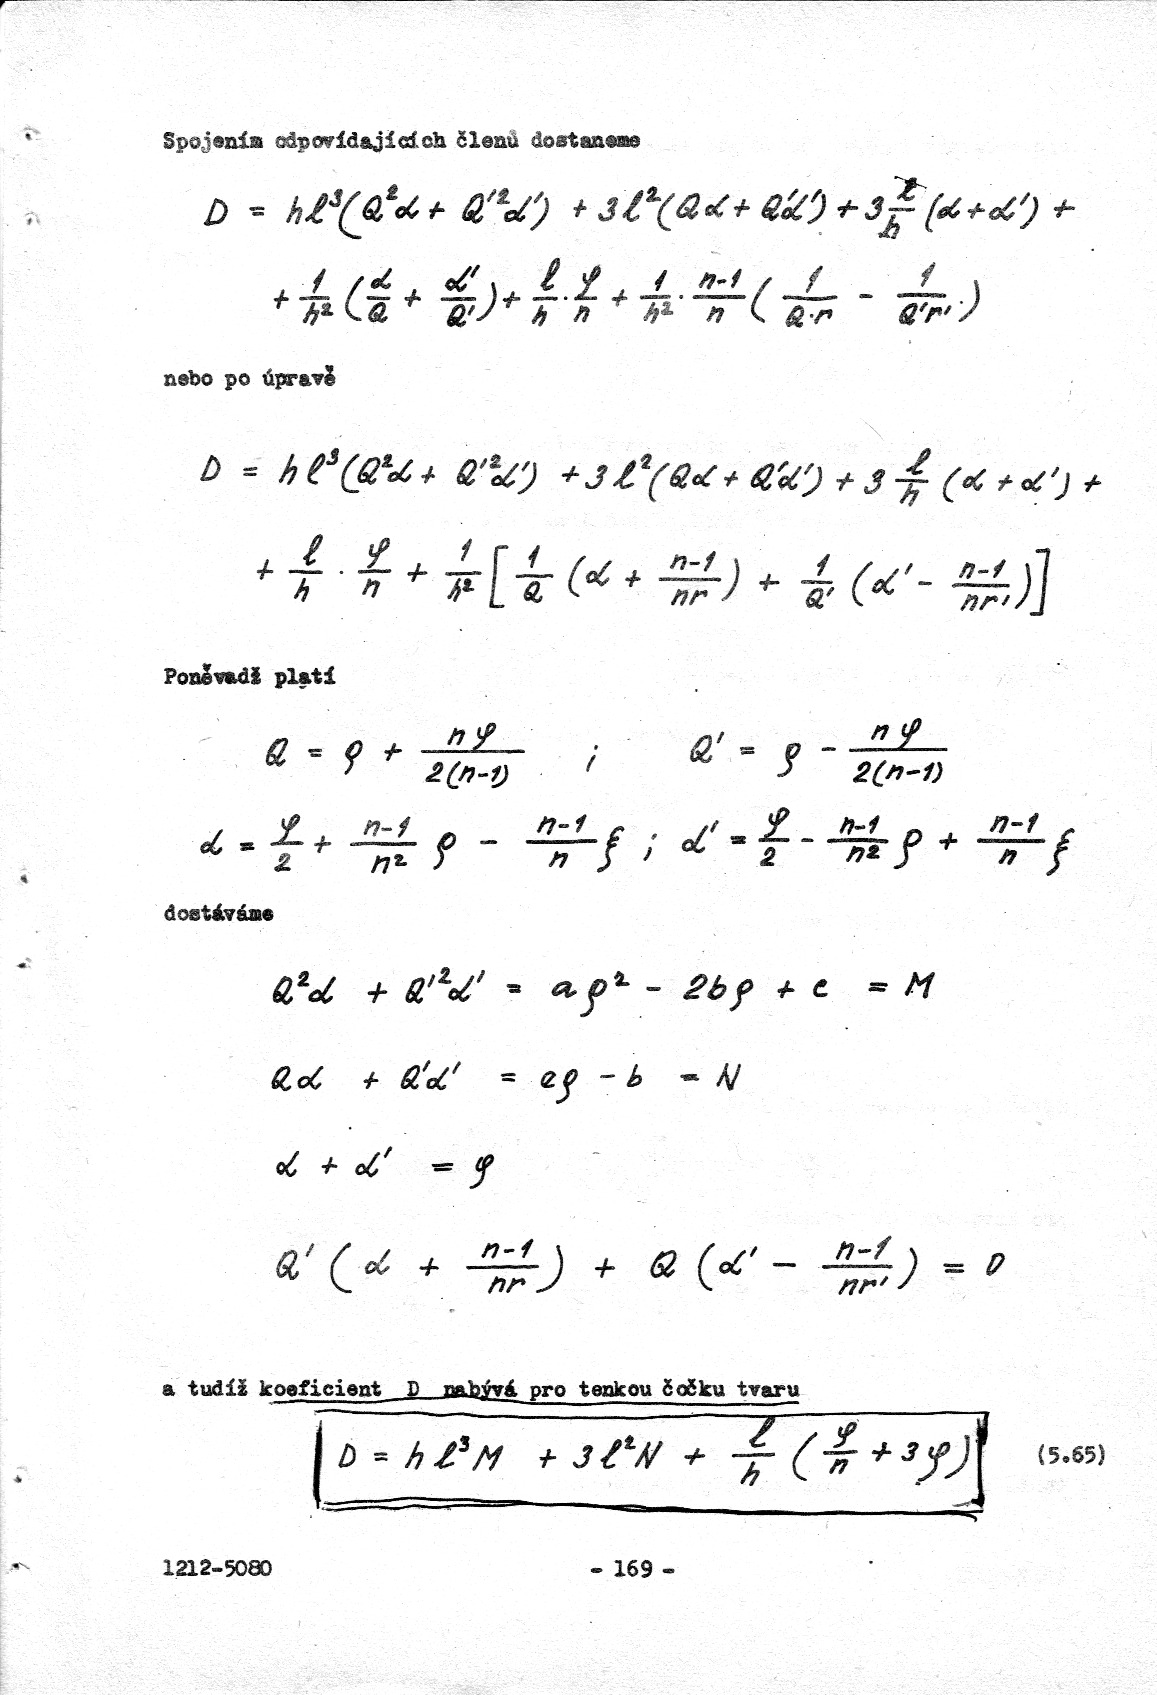 Spojením odpovídajících členů dostaneme
D = hl³(Q²α + Q'²α') + 3l²(Qα + Q'α') + 3 l/h (α + α') +
+ 1/h² (α/Q + α'/Q') + l/h · φ/n + 1/h² · n-1/n ( 1/Q·r - 1/Q'r' )
nebo po úpravě
D = hl³(Q²α + Q'²α') + 3l²(Qα + Q'α') + 3 l/h (α + α') +
+ l/h · φ/n + 1/h² [ 1/Q (α + n-1/nr) + 1/Q' (α' - n-1/nr')]
Poněvadž platí
Q = ρ + nφ/2(n-1) ; Q' = ρ - nφ/2(n-1)
α = φ/2 + n-1/n² ρ - n-1/n ξ ; α' = φ/2 - n-1/n² ρ + n-1/n ξ
dostáváme
Q²α + Q'²α' = aρ² - 2bρ + c = M
Qα + Q'α' = aρ - b = N
α + α' = φ
Q' (α + n-1/nr) + Q (α' - n-1/nr') = 0
a tudíž koeficient D nabývá pro tenkou čočku tvaru
D = hl³M + 3l²N + l/h (φ/n + 3φ) (5.65)
1212-5080 - 169 -